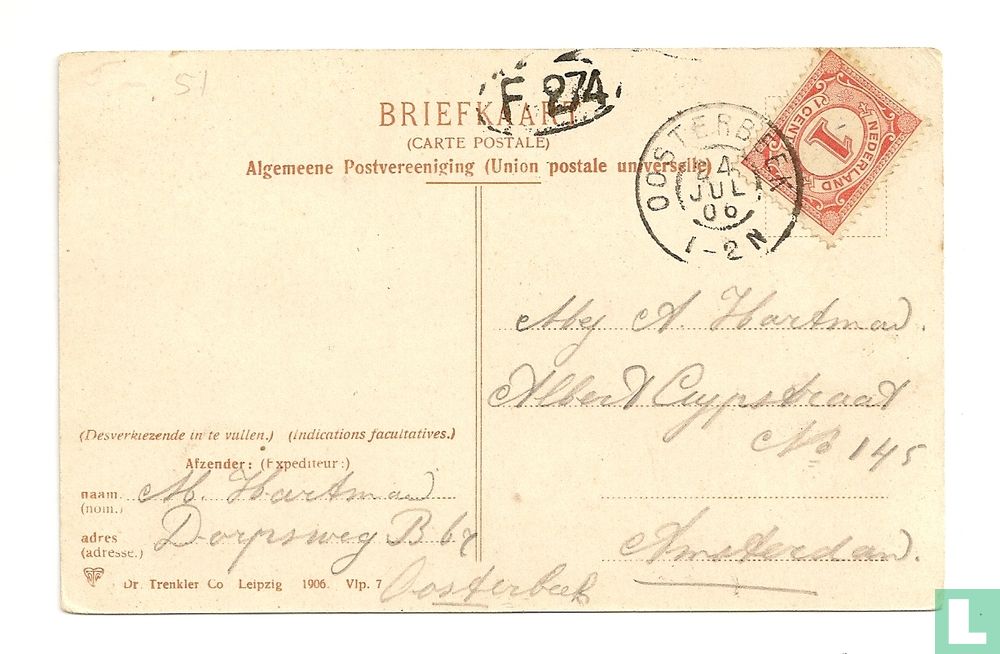 51
F 274
BRIEFKAART
(CARTE POSTALE)
Algemeene Postvereeniging (Union postale universelle)
OOSTERBEEK
4
JUL
06
1-2N
NEDERLAND
1
1 CENT
Mej A. Hartman.
Albert Cuypstraat
No 145
Amsterdam.
(Desverkiezende in te vullen.) (Indications facultatives.)
Afzender: (Expediteur:)
naam M. Hartman
(nom.)
adres Dorpsweg B
(adresse.)
Oosterbeek
Dr. Trenkler Co Leipzig 1906. Vlp. 7
L